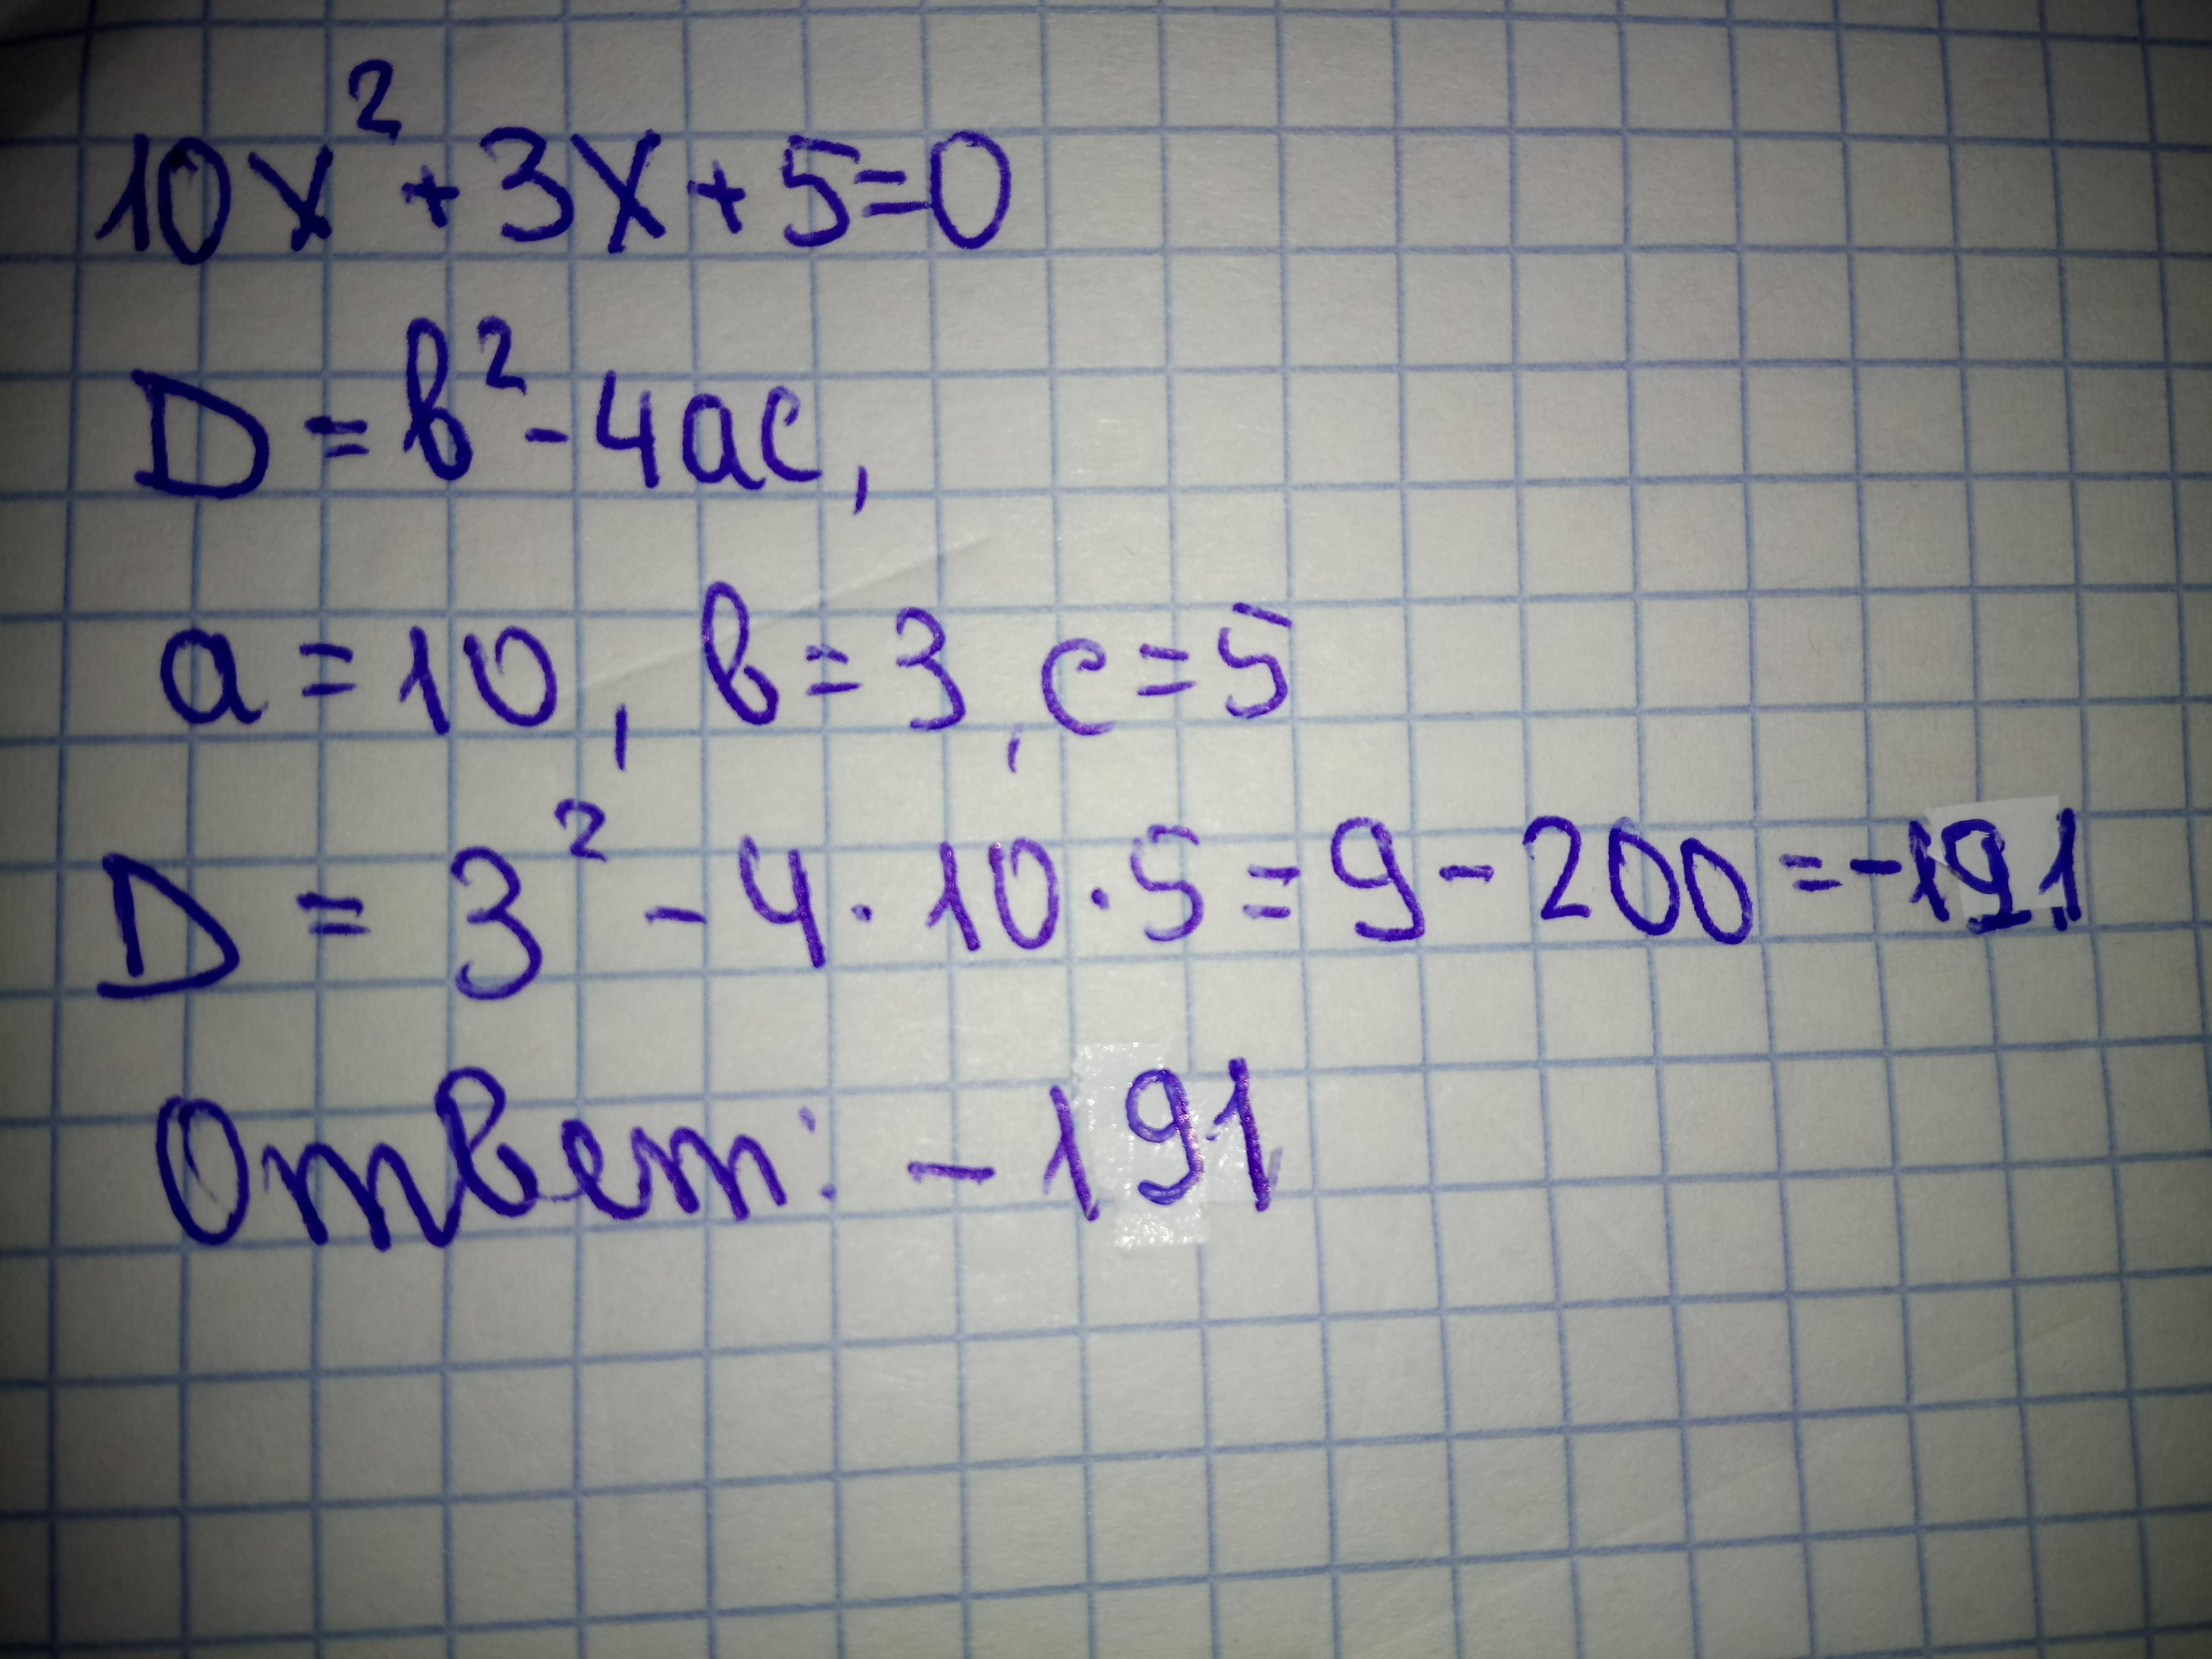 10x² + 3x + 5 = 0
D = b² - 4ac,
a = 10, b = 3, c = 5
D = 3² - 4 · 10 · 5 = 9 - 200 = -191
Ответ: -191